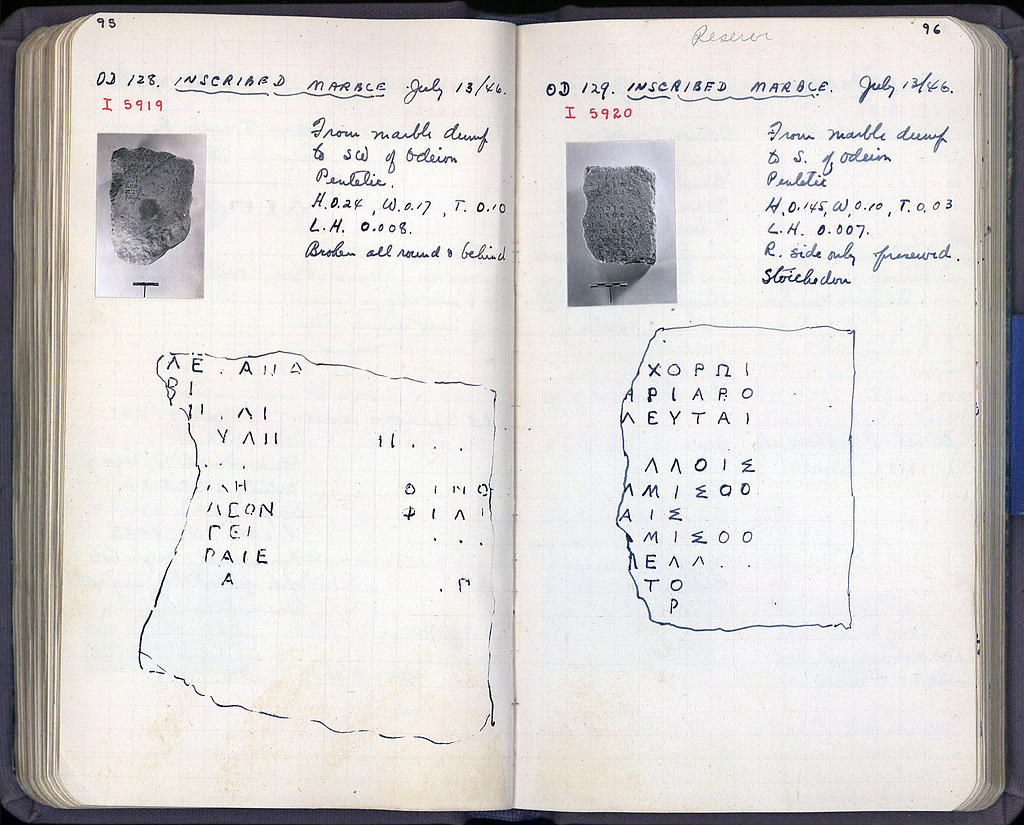 95
OD 128. INSCRIBED MARBLE July 13/46.
I 5919
From marble dump
to SW of Odeion
Pentelic.
H. 0.24, W. 0.17, T. 0.10
L.H. 0.008.
Broken all round & behind
ΛΕ.ΑΠΔ
ΒΙ
ΛΙ
ΥΛΙΙ ΙΙ...
..
ΛΗ ΟΙΜΟ
ΛΕΟΝ ΦΙΛΙ
ΓΕΙ ...
ΡΑΙΕ
Α .Γ
Reserv
96
OD 129. INSCRIBED MARBLE. July 13/46.
I 5920
From marble dump
to S. of Odeion
Pentelic
H. 0.145, W. 0.10, T. 0.03
L.H. 0.007.
R. side only preserved.
Stoichedon
ΧΟΡΩΙ
ΑΡΙΑΡΟ
ΛΕΥΤΑΙ
ΛΛΟΙΣ
ΛΜΙΣΟΟ
ΑΙΣ
ΛΜΙΣΟΟ
ΛΕΛΛ..
ΤΟ
Ρ